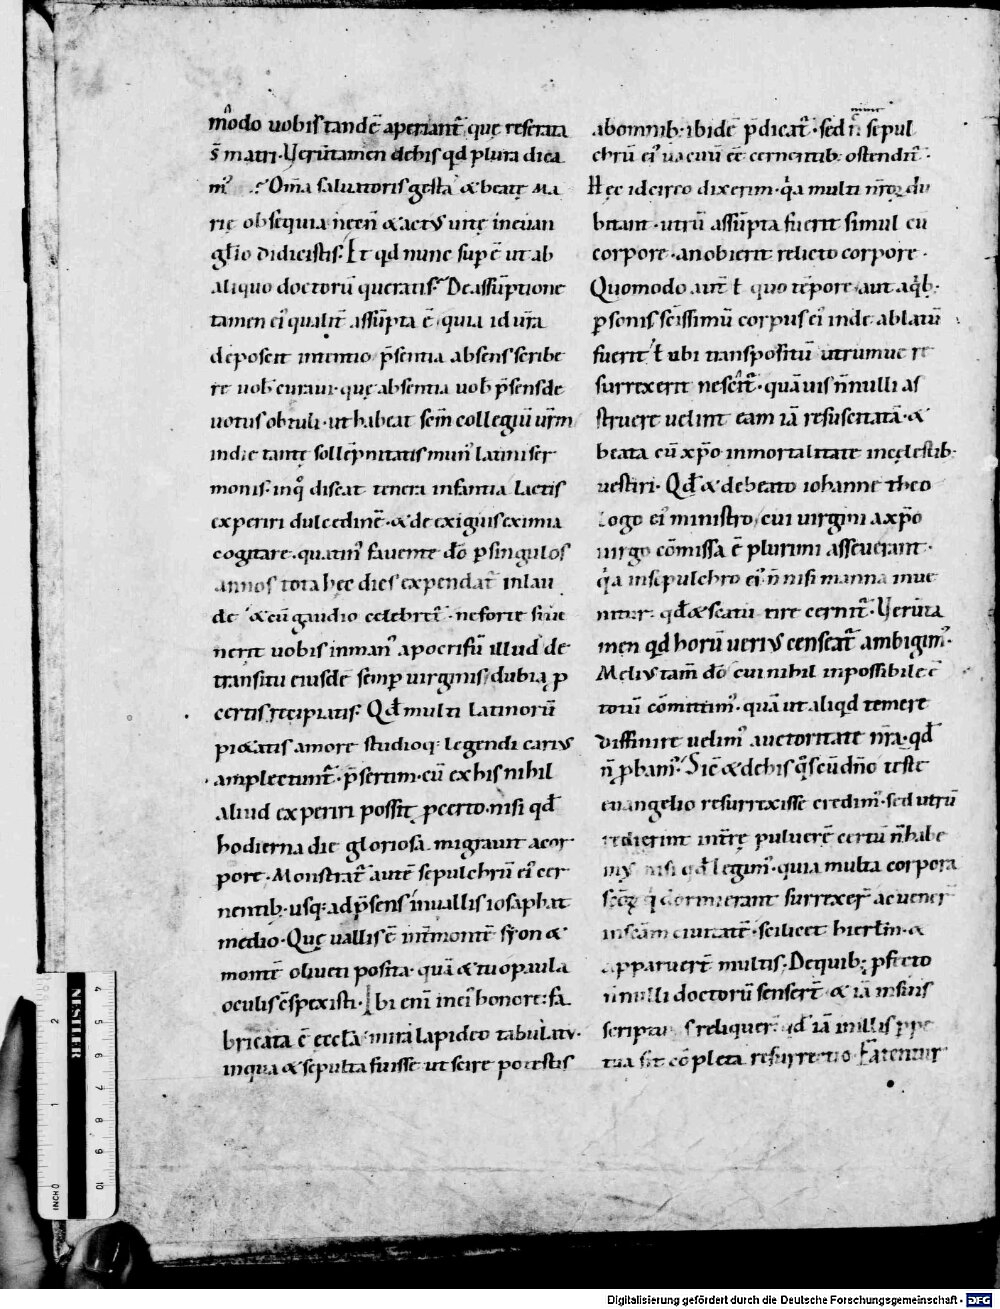 modo uobis tandē aperiant̄ quę reserata
s̄ matri. Uerūtamen de his qd̄ plura dica
m᷒ .? Om̄a saluatoris gesta & beatę ma
rię obsequia necn̄ & actꝰ uitę in euan
gl̄io didicistis. Et qd̄ nunc sup ē ut ab
aliquo doctorū queratis. De assūptione
tamen ei᷒ qualit̄ assūpta ē quia id ur̄a
deposcit intentio p̄sentia absens scribe
re uob̄ curaui. quę absentia uob̄ p̄sens de
uotus obtuli. ut habeat sc̄m collegiū ur̄m
in die tantę sollēpnitatis mun᷒ latini ser
monis. in q̊ discat tenera infantia lactis
experiri dulcedinē. & de exiguis eximia
cogitare. quatin᷒ fauente dō p singulos
annos tota hęc dies expendat̄ in lau
de & cū gaudio celebret̄. ne forte si ue
nerit uobis in man᷒ apocrifū illud de
transitu eiusdē semp uirginis. dubia p
certis recipiatis. Qd̄ multi latinorū
pi&atis amore studioq; legendi cariꝰ
amplectunt̄. p̄sertim. cū ex his nihil
aliud experiri possit p certo. nisi qd̄
hodierna die gloriosa migrauit a cor
pore. Monstrat̄ autē sepulchrū ei᷒ cer
nentib; usq; ad p̄sens in uallis iosaphat
medio. Quę uallis ē int̄ montē syon &
montē oliueti posita. quā & tu o paula
oculis c̄spexisti. Ibi eni in ei᷒ honore fa
bricata ē eccl̄a miro lapideo tabulatu.
in qua & sepulta fuisse ut scire potestis
ab omnib; ibidē p̄dicat̄. sed n̄ sepul
chrū ei᷒ uacuū ēē cernentib; ostendit̄.
Hęc idcirco dixerim. qa multi nr̄oꝝ du
bitant. utrū assūpta fuerit simul cū
corpore. an obierit relicto corpore.
Quomodo aut̄ ł quo tēpore. aut a qb;
psonis sc̄issimū corpus ei᷒ inde ablatū
fuerit ł ubi transpositū utrumue re
surrexerit nescit̄. quāuis n̄nulli as
struere uelint eam iā resuscitatā. &
beata cū xp̄o inmortalitate in cęlestib;
uestiri. Qd̄ & de beato iohanne theo
logo ei᷒ ministro. cui uirgini a xp̄o
uirgo cōmissa ē plurimi asseuerant.
qa in sepulchro ei᷒ n̄ nisi manna inue
nitur. qd̄ & scaturire cernit̄. Uerūta
men qd horū uerius censeat̄ ambigim᷒.
Meliꝰ tam̄ dō cui nihil inpossibile ē
totū cōmittim᷒. quā ut aliqd temere
diffinire uelim᷒ auctoritate nr̄a. qd̄
n̄ pbam᷒. Sic & de his qs cū dn̄o teste
euangelio resurrexisse credim᷒. sed utrū
redierint in t̄rę puluerē certū n̄ habe
mꝰ nisi qd̄ legim᷒. quia multa corpora
sc̄oꝝ q dormierant surrexer̄ ac uener̄
in sc̄am ciuitatē. scilicet hierl̄m. &
apparuerт multis. De quib; pfecto
n̄nulli doctorū senserт. & iā in suis
scriptur s reliquer. qd̄ iā in illis ppe
tua sit cōpleta resurrectio. Fatentur
Digitalisierung gefördert durch die Deutsche Forschungsgemeinschaft - DFG